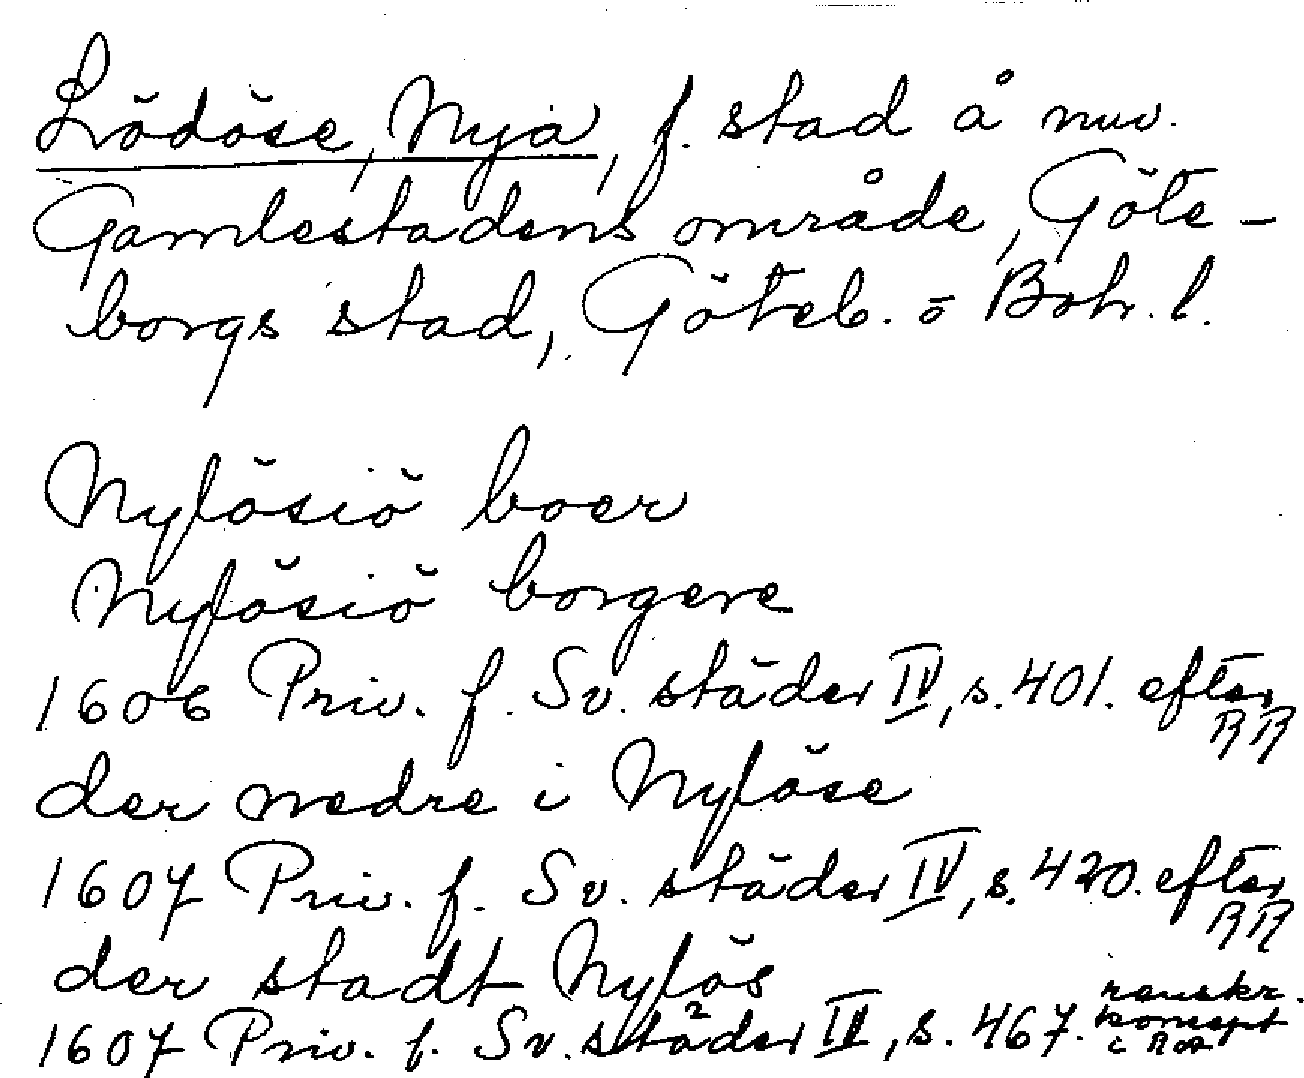 Lödöse, Nya, f. stad å nuv.
Gamlestadens område, Göte-
borgs stad, Göteb. o Boh. l.
Nylösiö boer
Nylösiö borgere
1606 Priv. f. Sv. städer IV, s. 401. efter
RR
der nedre i Nylöse
1607 Priv. f. Sv. städer IV, s. 420. efter
RR
der stadt Nylös
1607 Priv. f. Sv. städer IV, s. 467. renskr.
koncept
i